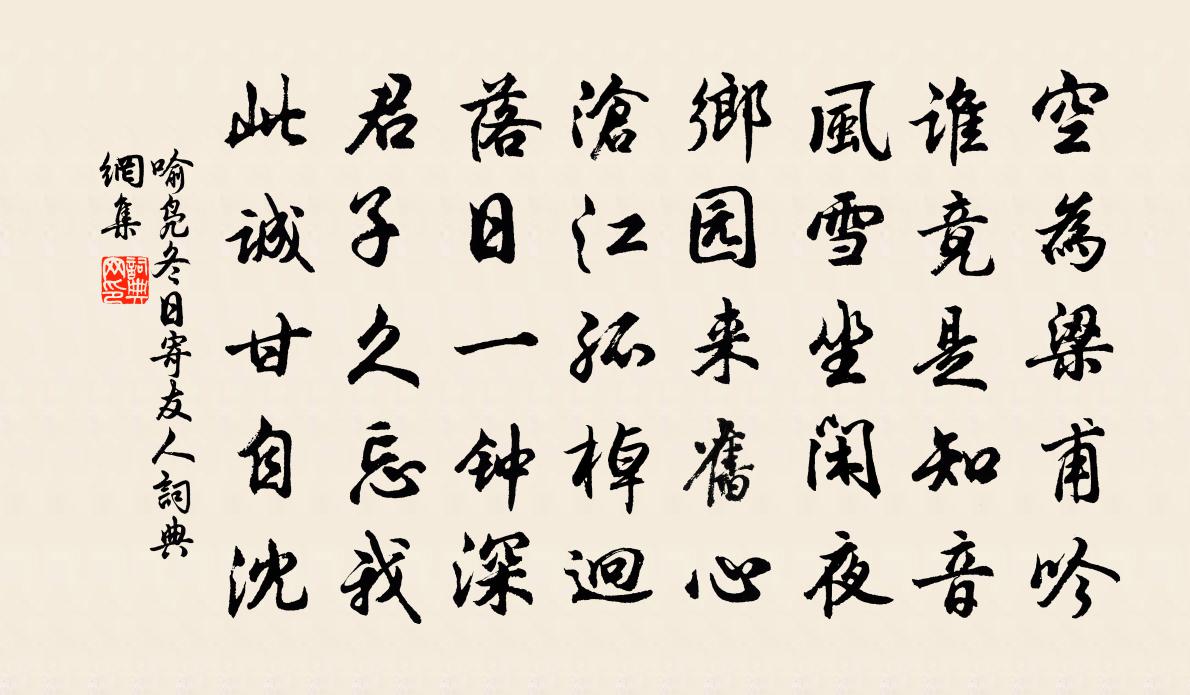 空為梁甫吟
谁竟是知音
風雪坐闲夜
鄉园来舊心
滄江孤棹迥
落日一钟深
君子久忘我
此诚甘自沈
喻凫冬日寄友人詞典
網集
詞典网印